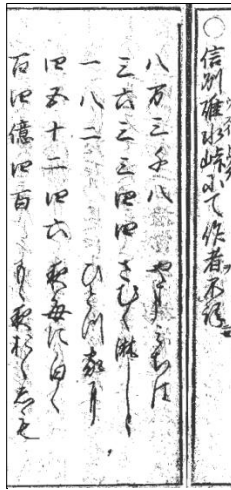 ○信州碓氷峠にて作者不詳
八万三千八 やまみちは
三六三三四四 さむくさみしし
一八二 ひとつ家に
四五十二四六 夜毎に白く
百四億四百 もゝ夜おく しも